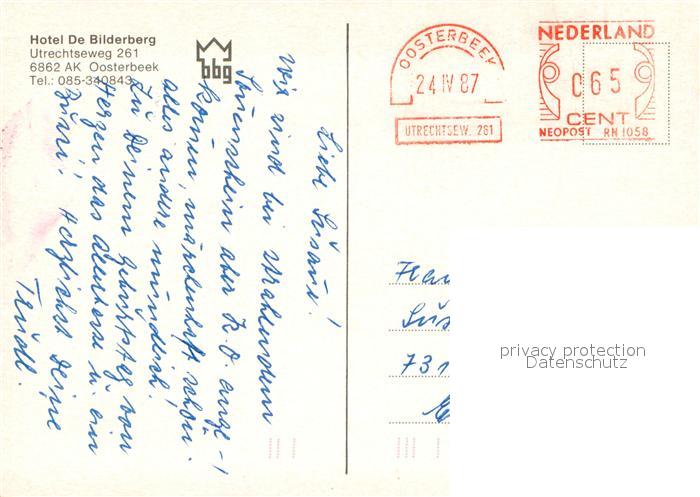 Hotel De Bilderberg
Utrechtseweg 261
6862 AK Oosterbeek
Tel.: 085-340843
bbg
OOSTERBEEK
24 IV 87
UTRECHTSEW. 261
NEDERLAND
065
CENT
NEOPOST RN 1058
Liebe Susann!
Wir sind bei strahlendem
Sonnenschein aber K.O. ange-
kommen, märchenhaft schön.
alles andere mündlich.
Zu Deinem Geburtstag von
Herzen das allerbeste u. ein
Bussi! Herzlichst Deine
Trudl.
731
privacy protection
Datenschutz